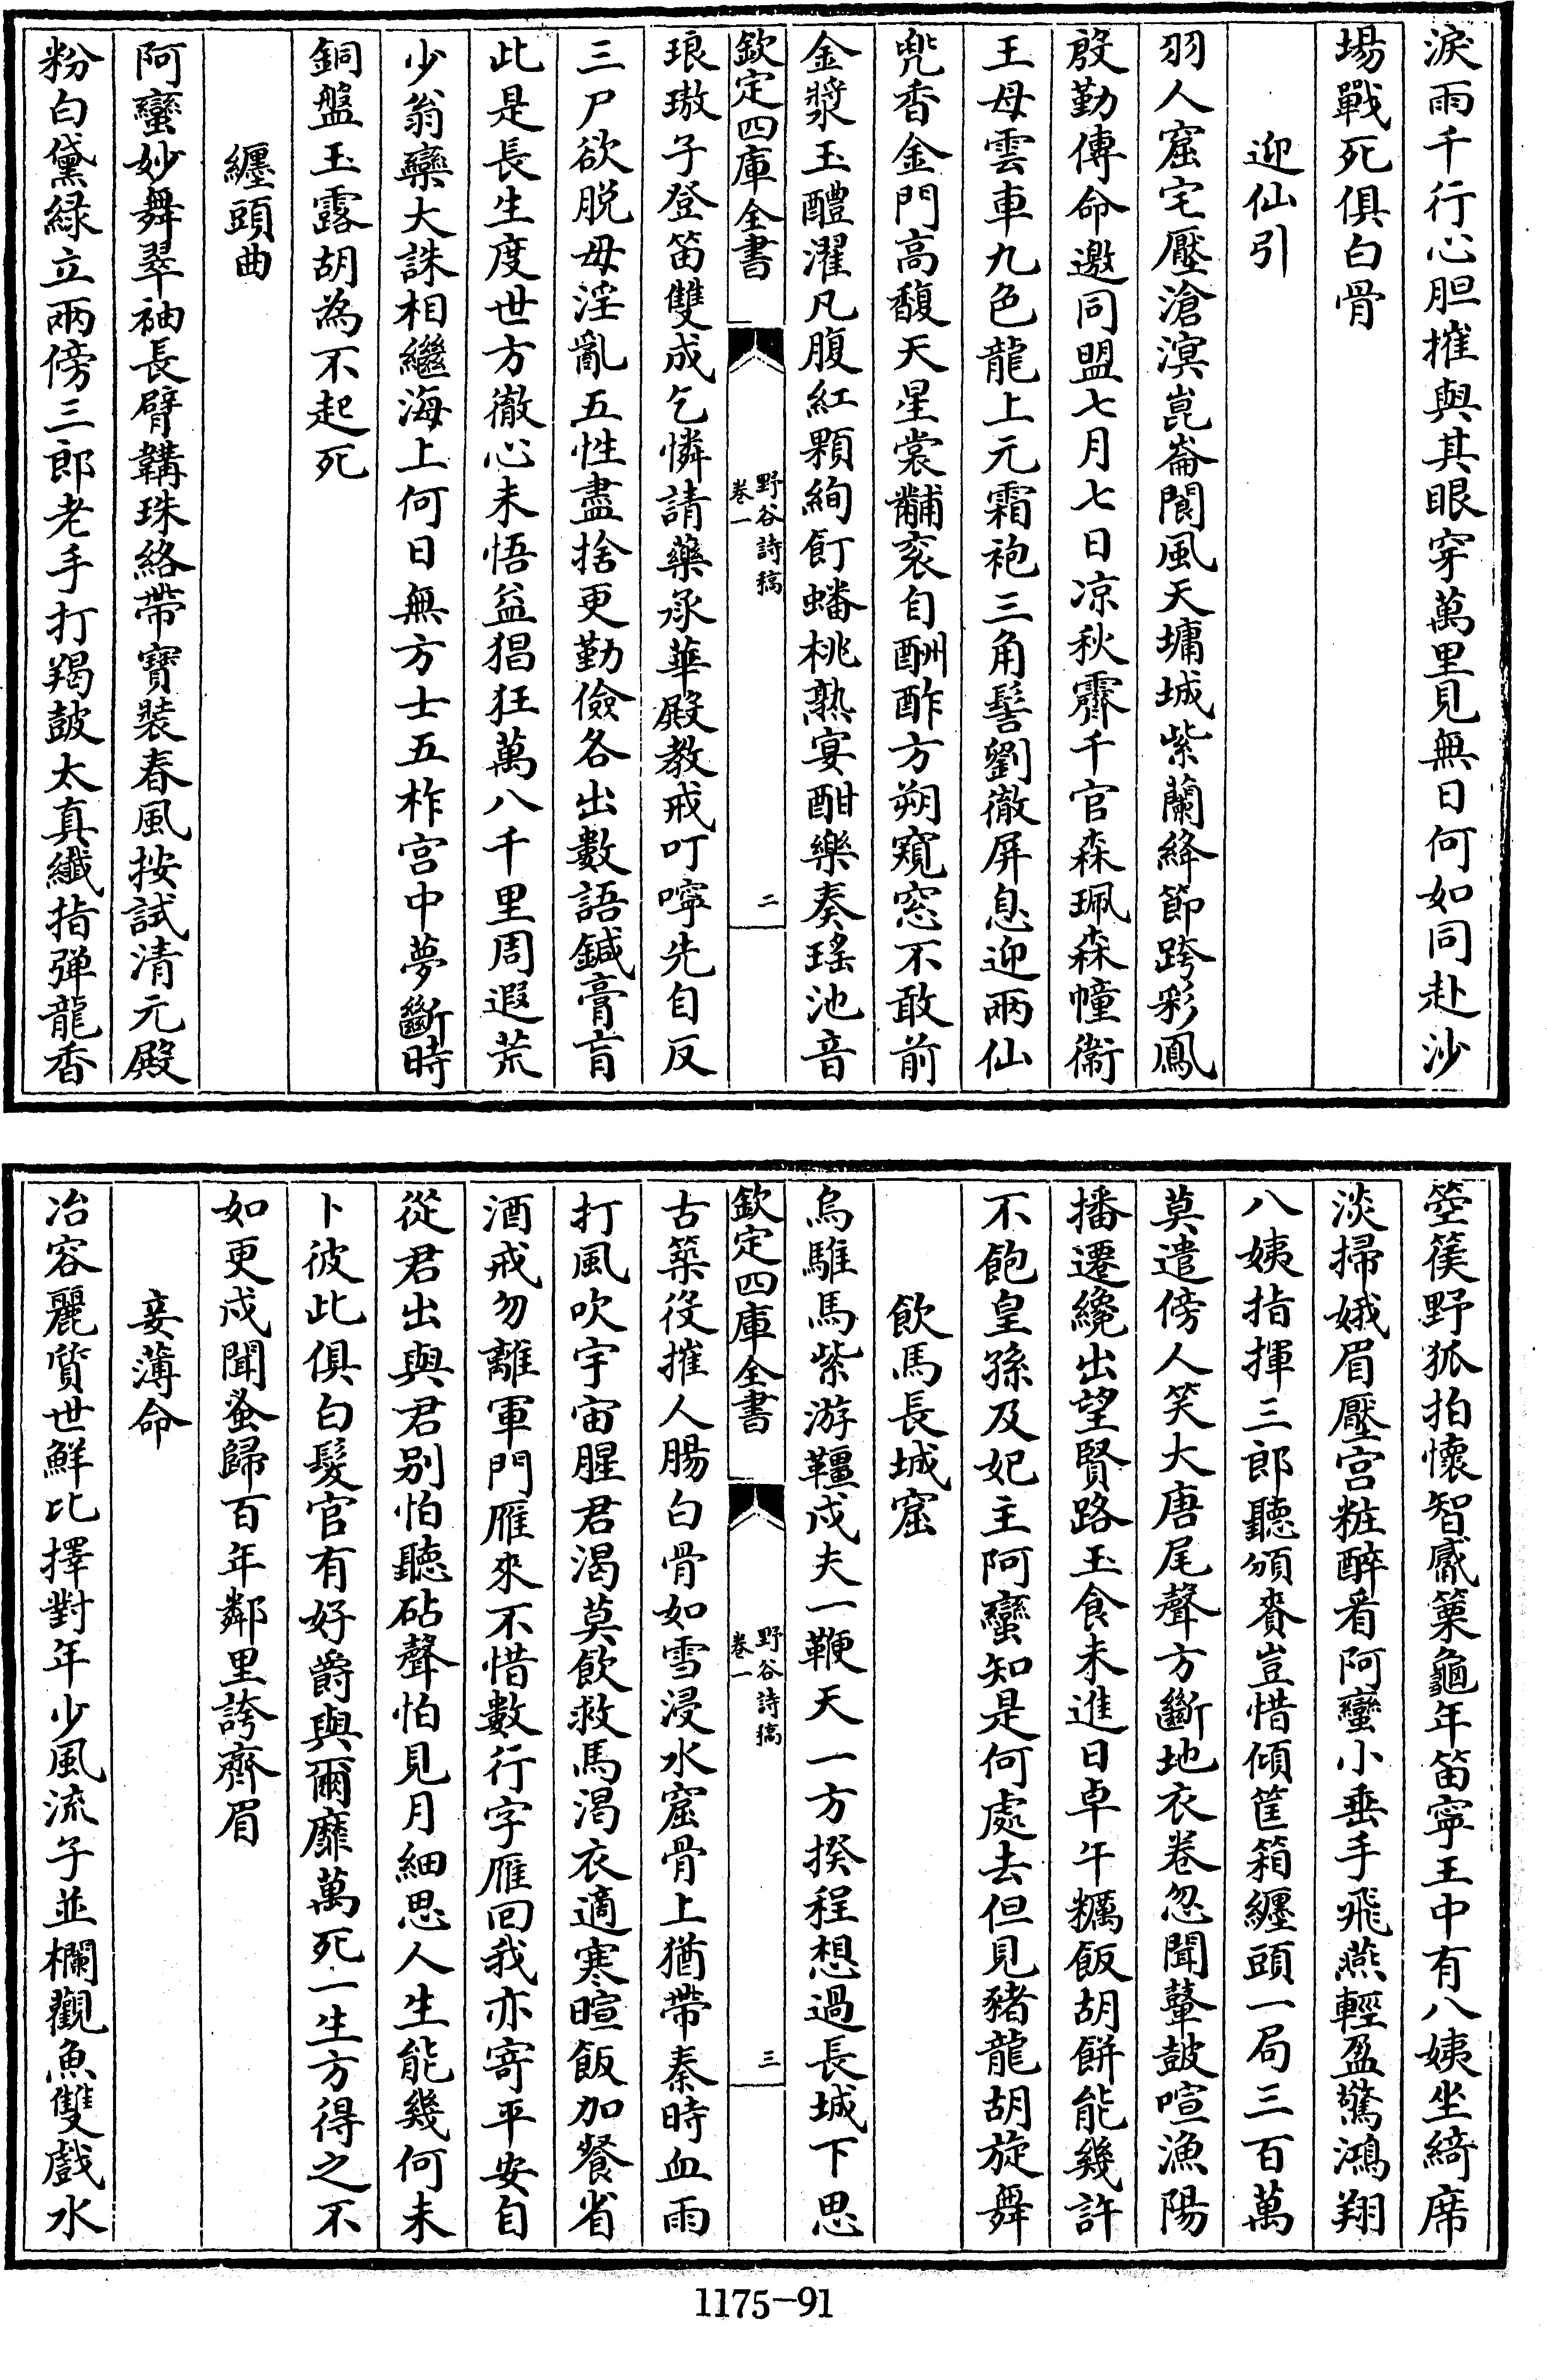 淚雨千行心胆摧與其眼穿萬里見無日何如同赴沙
場戰死俱白骨
迎仙引
羽人窟宅壓滄溟崑崙閬風天墉城紫蘭絳節跨彩鳳
殷勤傳命邀同盟七月七日凉秋霽千官森珮森幢衞
王母雲車九色龍上元霜袍三角髻劉徹屏息迎兩仙
兜香金門高馥天星裳黼衮自酬酢方朔窺窓不敢前
金漿玉醴濯凡腹紅顆絢飣蟠桃熟宴酣樂奏瑤池音
欽定四庫全書
野谷詩稿
卷一
二
琅璈子登笛雙成乞憐請藥承華殿教戒叮嚀先自反
三尸欲脱毋淫亂五性盡捨更勤儉各出數語鍼膏肓
此是長生度世方徹心未悟益猖狂萬八千里周遐荒
少翁欒大誅相繼海上何日無方士五柞宫中夢斷時
銅盤玉露胡為不起死
纒頭曲
阿蠻妙舞翠袖長臂韝珠絡帶寳裝春風按試清元殿
粉白黛緑立兩傍三郎老手打羯皷太真纖指弹龍香
箜篌野狐拍懷智觱篥龜年笛寧王中有八姨坐綺席
淡掃娥眉壓宫粧醉看阿蠻小垂手飛燕輕盈驚鴻翔
八姨指揮三郎聽頒賚豈惜傾筐箱纒頭一局三百萬
莫遣傍人笑大唐尾聲方斷地衣卷忽聞鼙皷喧漁陽
播遷纔出望賢路玉食未進日卓午糲飯胡餅能幾許
不飽皇孫及妃主阿蠻知是何處去但見豬龍胡旋舞
飲馬長城窟
烏騅馬紫游韁戍夫一鞭天一方揆程想過長城下思
欽定四庫全書
野谷詩稿
卷一
三
古築役摧人腸白骨如雪浸水窟骨上猶帶秦時血雨
打風吹宇宙腥君渴莫飲救馬渴衣適寒暄飯加餐省
酒戒勿離軍門雁來不惜數行字雁回我亦寄平安自
從君出與君别怕聽砧聲怕見月細思人生能幾何未
卜彼此俱白髮官有好爵與爾靡萬死一生方得之不
如更戍聞蚤歸百年鄰里誇齊眉
妾薄命
冶容麗質世鮮比擇對年少風流子並欄觀魚雙戲水
1175-91